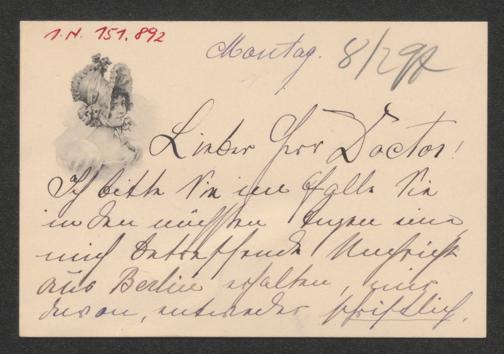 I.N. 151.892
Montag. 8/2 98
Lieber Herr Doctor!
Ich bitte Sie im Falle Sie
in den nächsten Tagen eine
mich betreffende Nachricht
aus Berlin erhalten, mir
davon, entweder schriftlich,